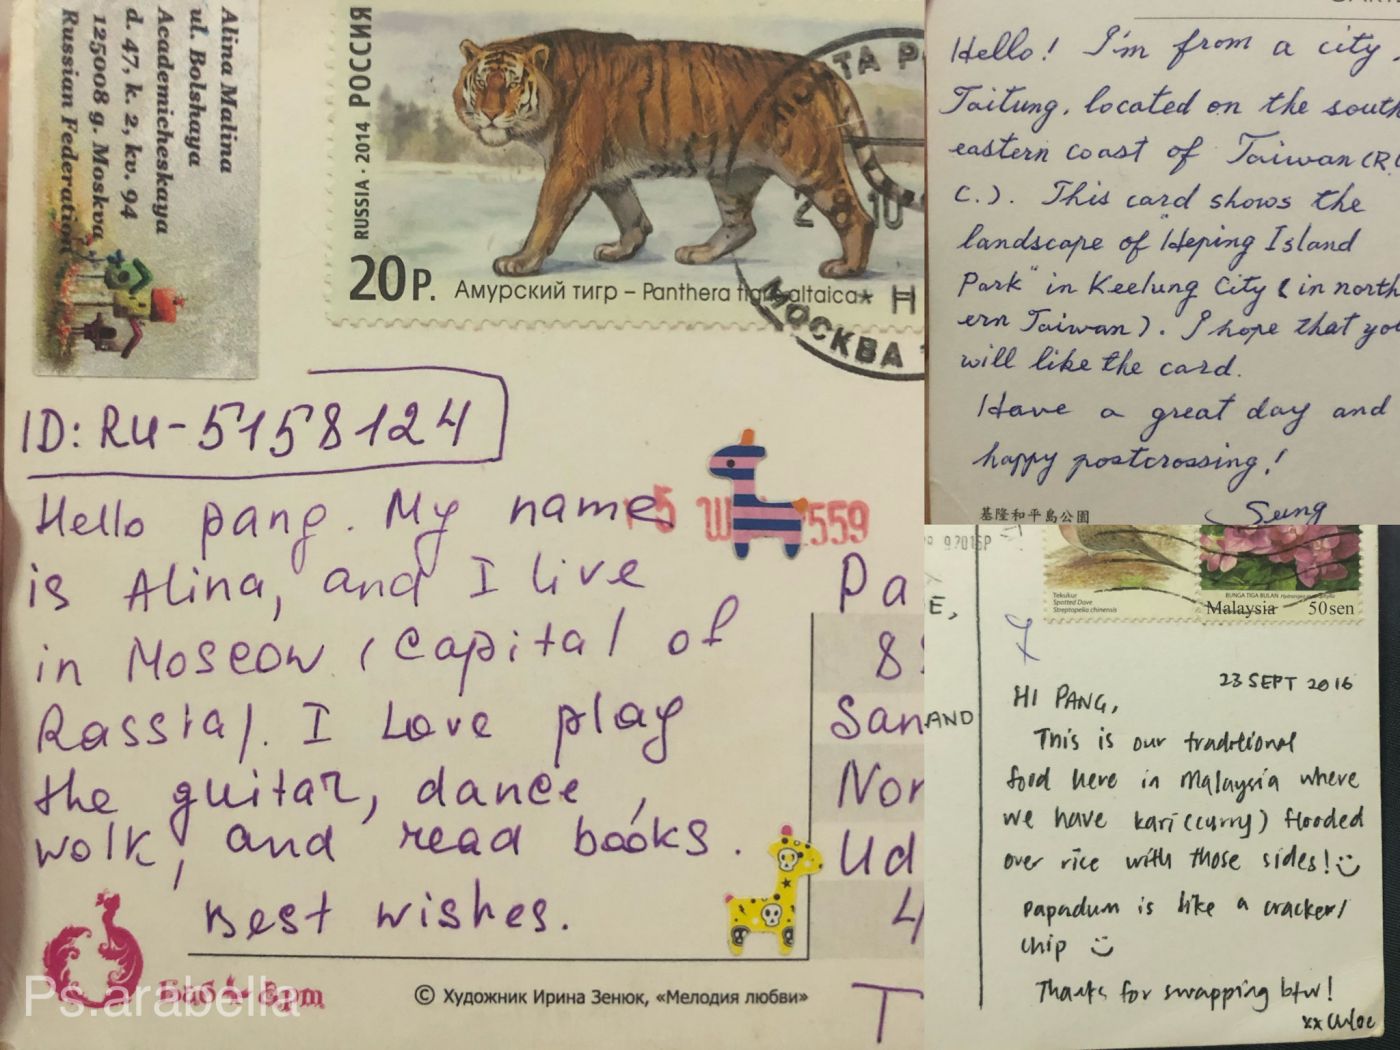 Alina Malina
ul. Bolshaya
Academicheskaya
d. 47, k. 2, kv. 94
125008 g. Moskva
Russian Federation
RUSSIA · 2014 РОССИЯ
20 Р.
Амурский тигр – Panthera tigris altaica
МОСКВА
ID: RU-5158124
Hello pang. My name
is Alina, and I live
in Moscow (capital of
Rassia). I Love play
the guitar, dance,
wolk, and read books.
Best wishes.
559
Pa
San
Nor
Ud
4
T
© Художник Ирина Зенюк, «Мелодия любви»
Ps.arabella
Hello! I'm from a city,
Taitung, located on the south
eastern coast of Taiwan (R.
C.). This card shows the
landscape of "Heping Island
Park" in Keelung City (in north
ern Taiwan). I hope that you
will like the card.
Have a great day and
happy postcrossing!
Sung
基隆和平島公園
Tekukur
Spotted Dove
Streptopelia chinensis
BUNGA TIGA BULAN
Malaysia 50sen
E,
AND
23 SEPT 2016
HI PANG,
This is our traditional
food here in Malaysia where
we have kari (curry) flooded
over rice with those sides!
Papadum is like a cracker/
chip
Thanks for swapping btw!
xx Chloe